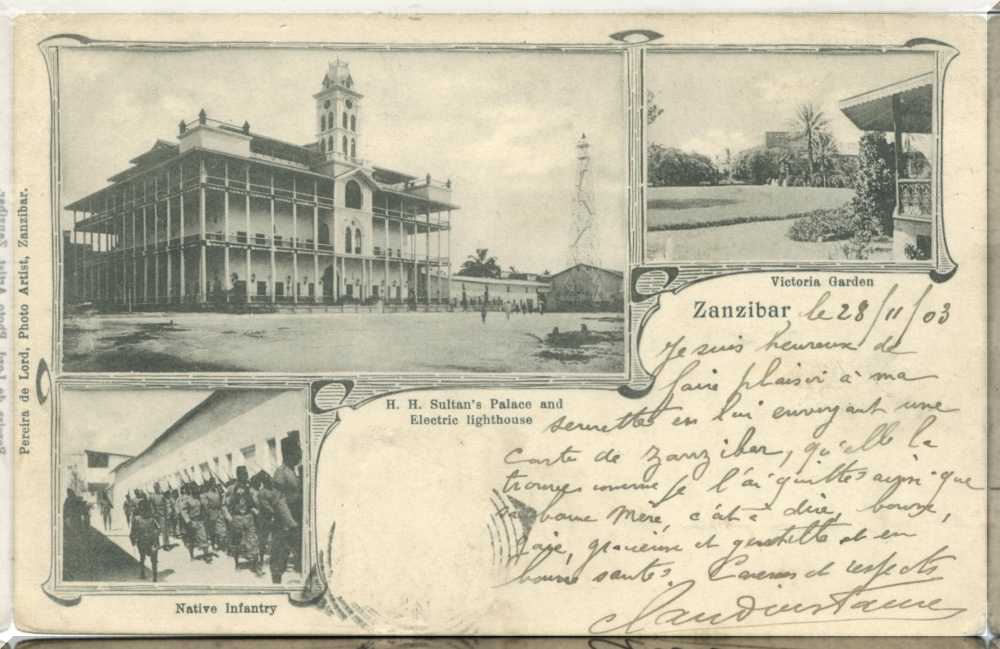 Pereira de Lord, Photo Artist, Zanzibar.
Victoria Garden
Zanzibar le 28/11/03
Je suis heureux de
faire plaisir à ma
en lui envoyant une
carte de Zanzibar, qu'elle la
trouve comme je l'ai quittée ainsi que
sa bonne Mère, c'est à dire, bonne,
gaie, gracieuse et gentille et en
bonne santé. Caresses et respects
H. H. Sultan's Palace and
Electric lighthouse
Native Infantry